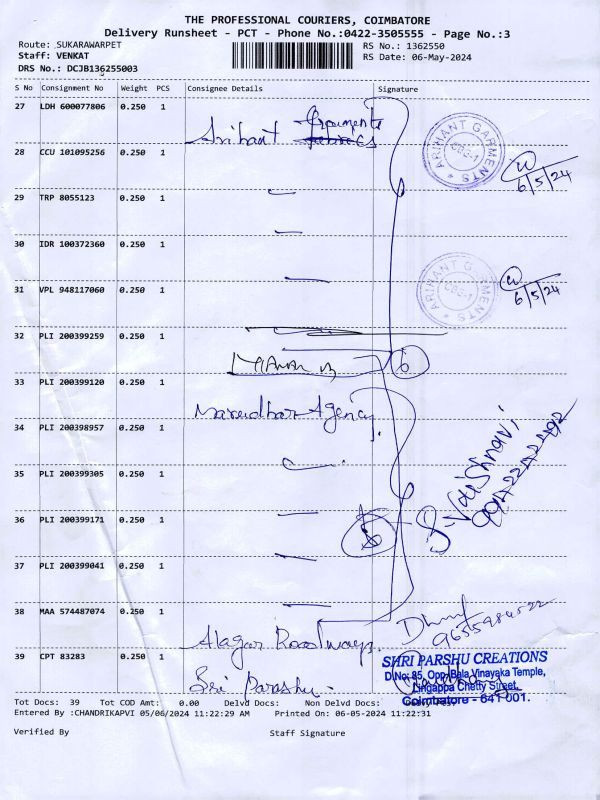 THE PROFESSIONAL COURIERS, COIMBATORE
Delivery Runsheet - PCT - Phone No.:0422-3505555 - Page No.:3
Route: SUKARAWARPET
RS No.: 1362550
Staff: VENKAT
RS Date: 06-May-2024
DRS No.: DCJB136255003
S No Consignment No Weight PCS Consignee Details Signature
27 LDH 600077806 0.250 1
Garments
Arihant
ARIHANT GARMENTS
CBE-1
28 CCU 101095256 0.250 1
6/5/24
29 TRP 8055123 0.250 1
30 IDR 100372360 0.250 1
31 VPL 948117060 0.250 1
ARIHANT GARMENTS
CBE-1
6/5/24
32 PLI 200399259 0.250 1
6
33 PLI 200399120 0.250 1
Marudhar Agency.
34 PLI 200398957 0.250 1
35 PLI 200399305 0.250 1
S. Vaishnavi
36 PLI 200399171 0.250 1
37 PLI 200399041 0.250 1
38 MAA 574487074 0.250 1
Alagar Roadways.
39 CPT 83283 0.250 1
Sri Parashu.
SHRI PARSHU CREATIONS
D.No: 85, Opp. Bala Vinayaka Temple,
Lingappa Chetty Street,
Coimbatore - 641 001.
Tot Docs: 39 Tot COD Amt: 0.00 Delvd Docs: Non Delvd Docs:
Entered By :CHANDRIKAPVI 05/06/2024 11:22:29 AM Printed On: 06-05-2024 11:22:31
Verified By Staff Signature